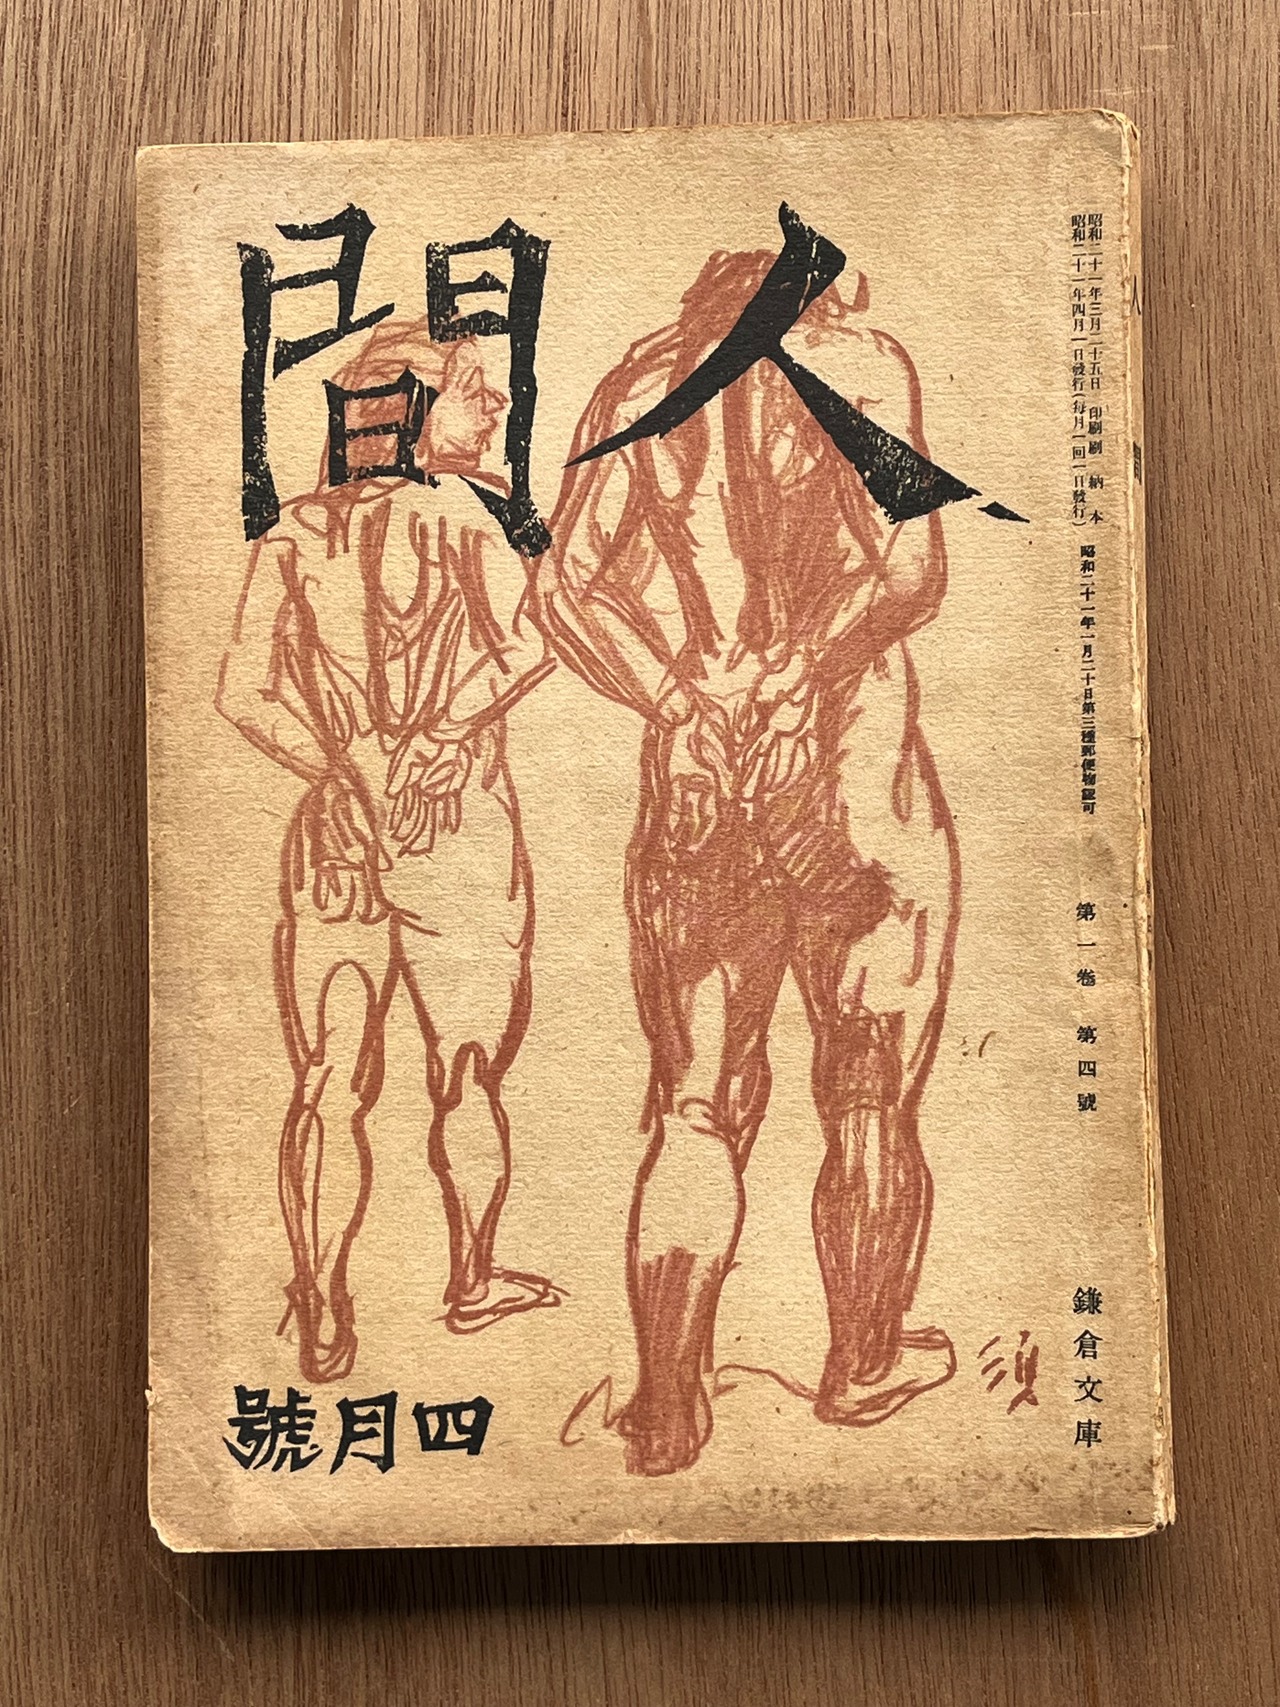 人間
昭和二十一年三月二十五日 印刷納本
昭和二十一年四月一日發行(每月一回一日發行)
昭和二十一年一月二十日第三種郵便物認可
第一卷 第四號
鎌倉文庫
四月號
須